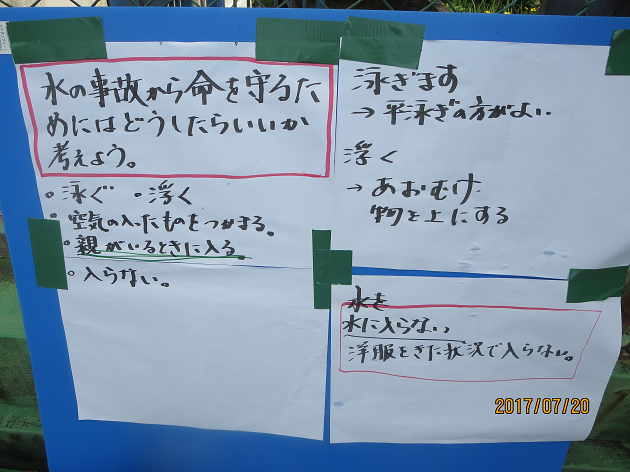 水の事故から命を守るた
めにはどうしたらいいか
考えよう。
・泳ぐ ・浮く
・空気の入ったものをつかまる。
・親がいるときに入る。
・入らない。
泳ぎます
→ 平泳ぎの方がよい
浮く
→ あおむけ
物を上にする
水を
水に入らない
洋服をきた状況で入らない。
2017/07/20